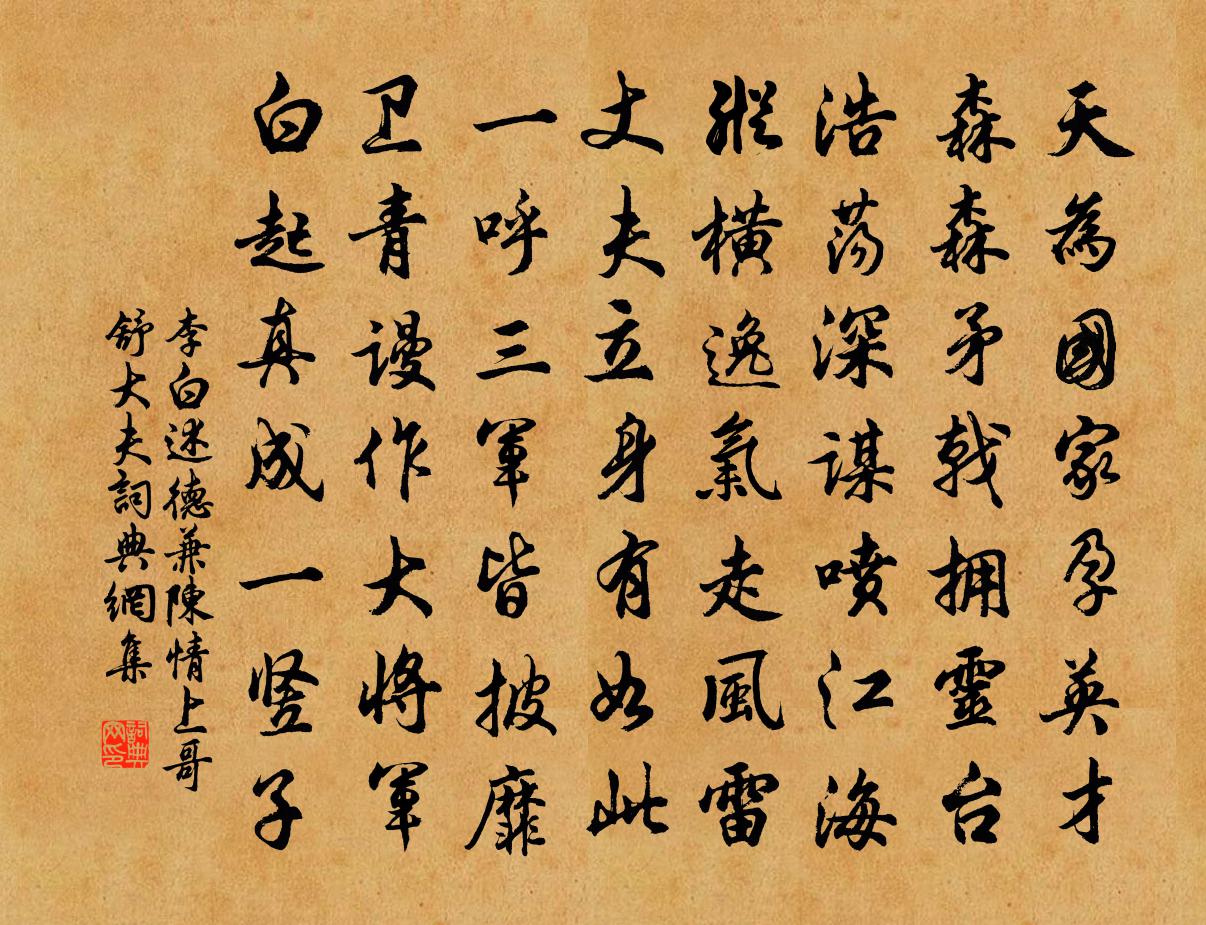 天為國家孕英才
森森矛戟拥靈台
浩荡深謀喷江海
縱橫逸氣走風雷
丈夫立身有如此
一呼三軍皆披靡
卫青謾作大將軍
白起真成一竖子
李白述德兼陳情上哥
舒大夫詞典網集
詞典
网印